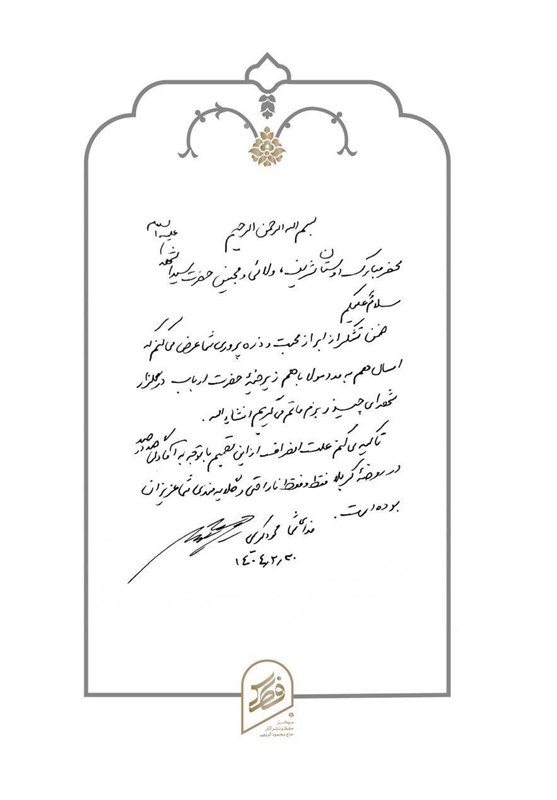 بسم اله الرحمن الرحیم
محضر مبارک دوستان شریف، ولائی و محبین حضرت سیدالشهدا علیه السلام
سلام علیکم
ضمن تشکر از ابراز محبت و ذره پروری شما عرض می‌کنم که
امسال هم به مدد مولا با هم زیر خیمهٔ حضرت ارباب در گلزار
شهدای چیذر بزم ماتم می‌گیریم انشاءاله.
تاکید می‌کنم علت انصراف از این تصمیم با توجه به آمادگی صددرصد
در روضهٔ کربلا فقط و فقط ناراحتی و گلایه‌مندی شما عزیزان
بوده است.
فدای شما محمود کریمی
۱۴۰۴٫۳٫۳۰
فطرس
حفظ و نشر آثار
حاج محمود کریمی